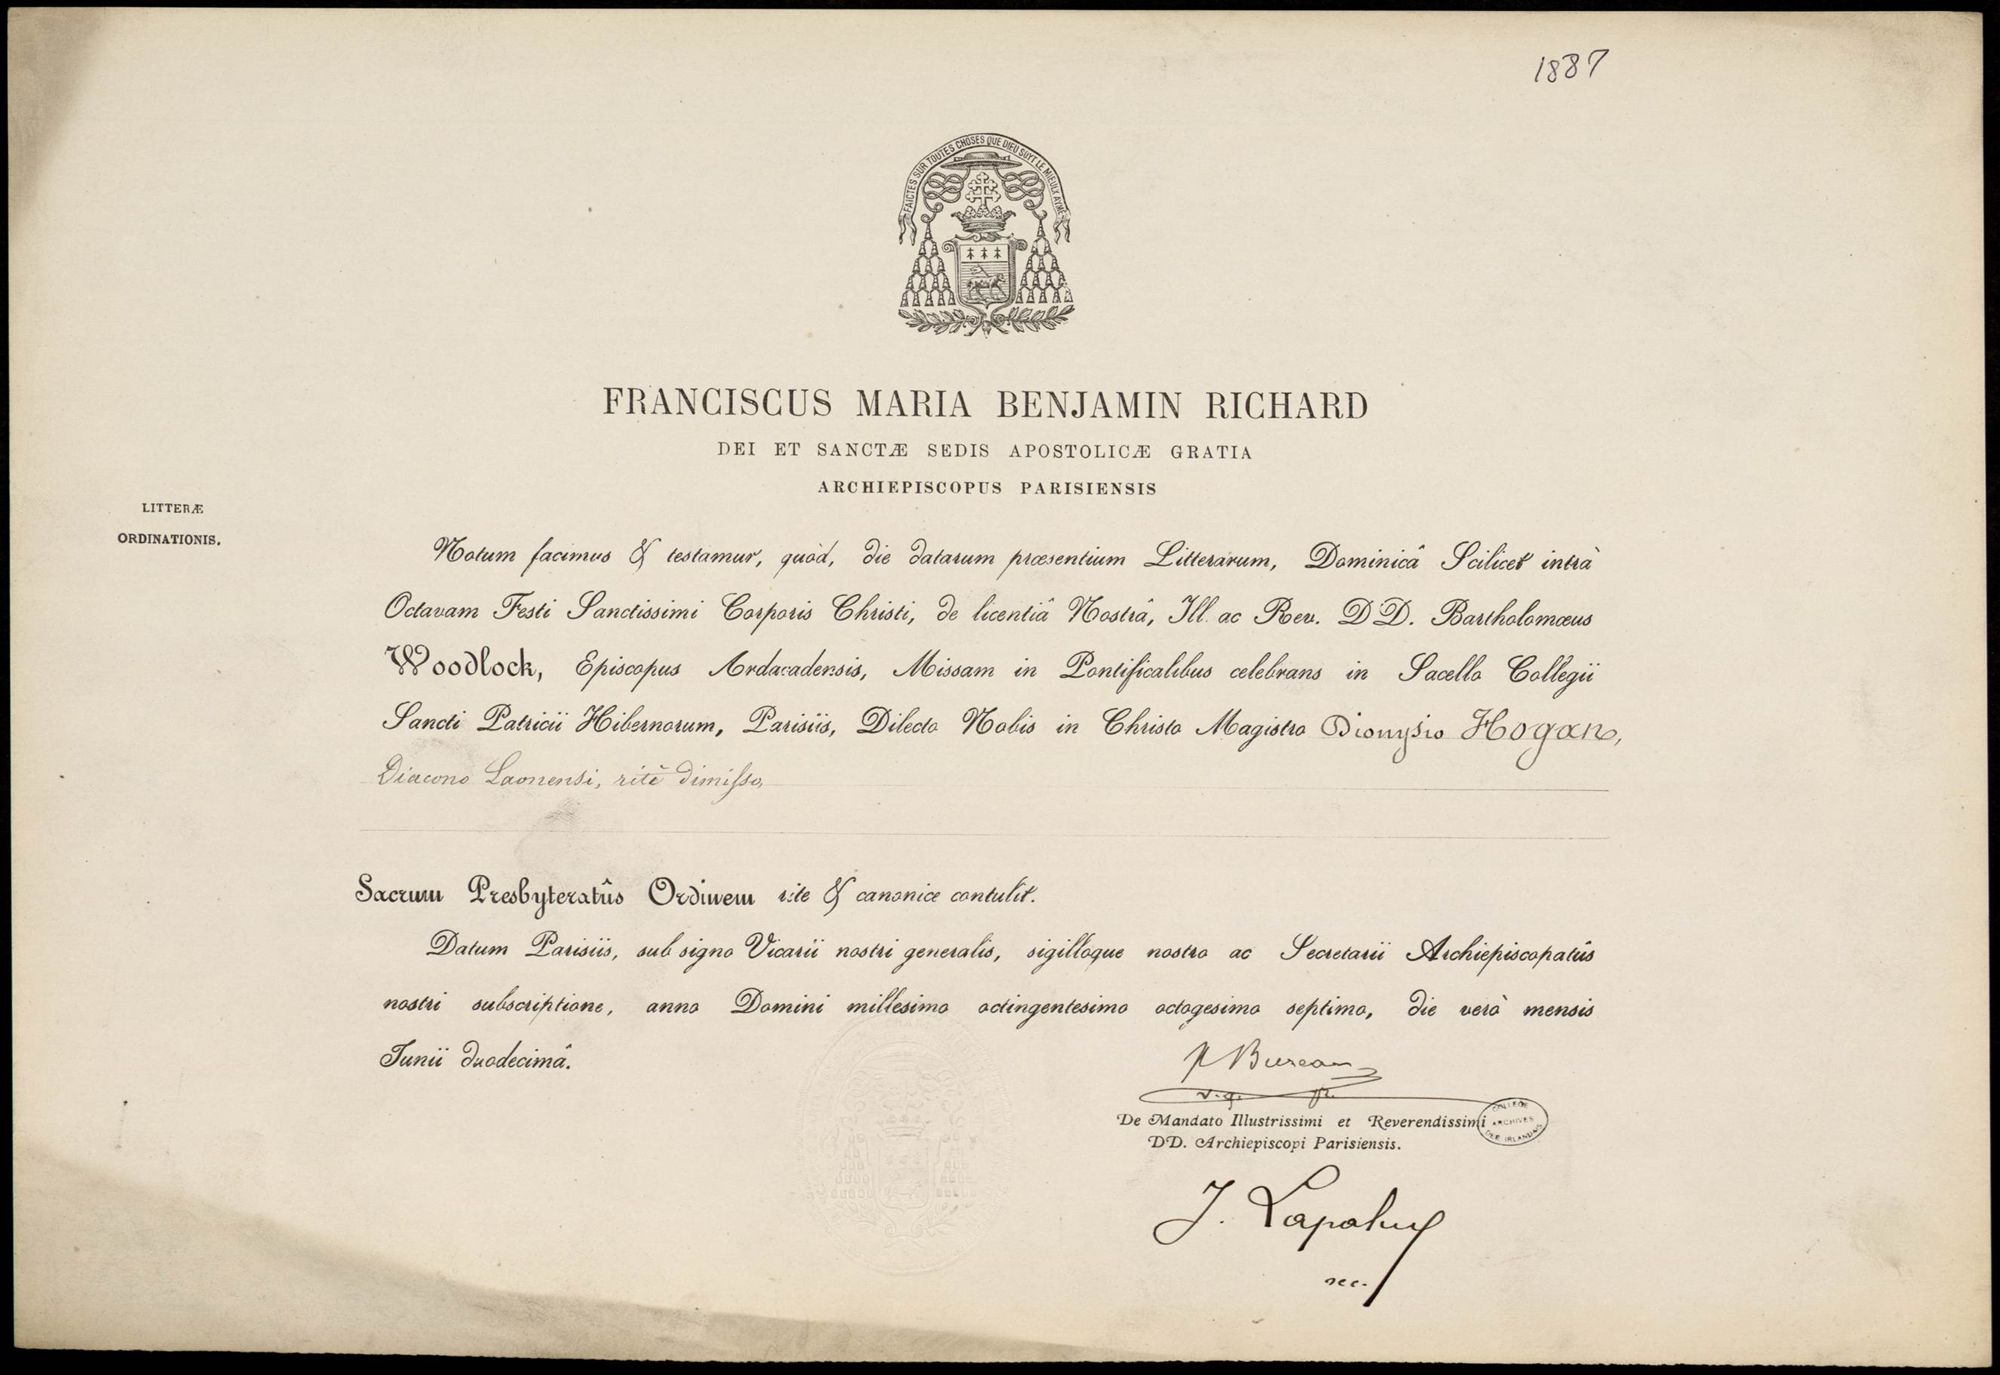 1887
FAICTES SUR TOUTES CHOSES QUE DIEU SOYT LE MIEULX AYMÉ
FRANCISCUS MARIA BENJAMIN RICHARD
DEI ET SANCTÆ SEDIS APOSTOLICÆ GRATIA
ARCHIEPISCOPUS PARISIENSIS
LITTERÆ
ORDINATIONIS.
Notum facimus & testamur, quòd, die datarum præsentium Litterarum, Dominicâ Scilicet intrà
Octavam Festi Sanctissimi Corporis Christi, de licentiâ Nostrâ, Ill. ac Rev. DD. Bartholomæus
Woodlock, Episcopus Ardacadensis, Missam in Pontificalibus celebrans in Sacello Collegii
Sancti Patricii Hibernorum, Parisiis, Dilecto Nobis in Christo Magistro Dionysio Hogan,
Diacono Laonensi, ritè dimisso,
Sacrum Presbyteratûs Ordinem rite & canonice contulit.
Datum Parisiis, sub signo Vicarii nostri generalis, sigilloque nostro ac Secretarii Archiepiscopatûs
nostri subscriptione, anno Domini millesimo octingentesimo octogesimo septimo, die verò mensis
Junii duodecimâ.
Bureau
v. g.
De Mandato Illustrissimi et Reverendissimi
DD. Archiepiscopi Parisiensis.
COLLEGE
ARCHIVES
DES IRLANDAIS
J. Lapalme
sec.